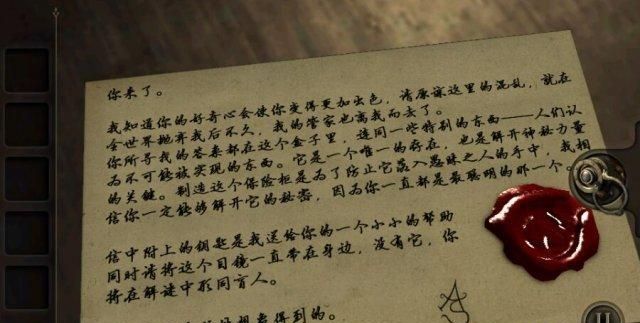 你来了。
我知道你的好奇心会使你变得更加出色，请原谅这里的混乱，就在
全世界抛弃我后不久，我的管家也离我而去了。
你所寻找的答案都在这个盒子里，连同一些特别的东西——人们认
为不可能被实现的东西。它是一个唯一的存在，也是解开神秘力量
的关键。制造这个保险柜是为了防止它落入愚昧之人的手中，我相
信你一定能够解开它的秘密，因为你一直都是最聪明的那一个。
信中附上的钥匙是我送给你的一个小小的帮助
同时请将这个目镜一直带在身边，没有它，你
将在解谜中形同盲人。
想得到的。
AS